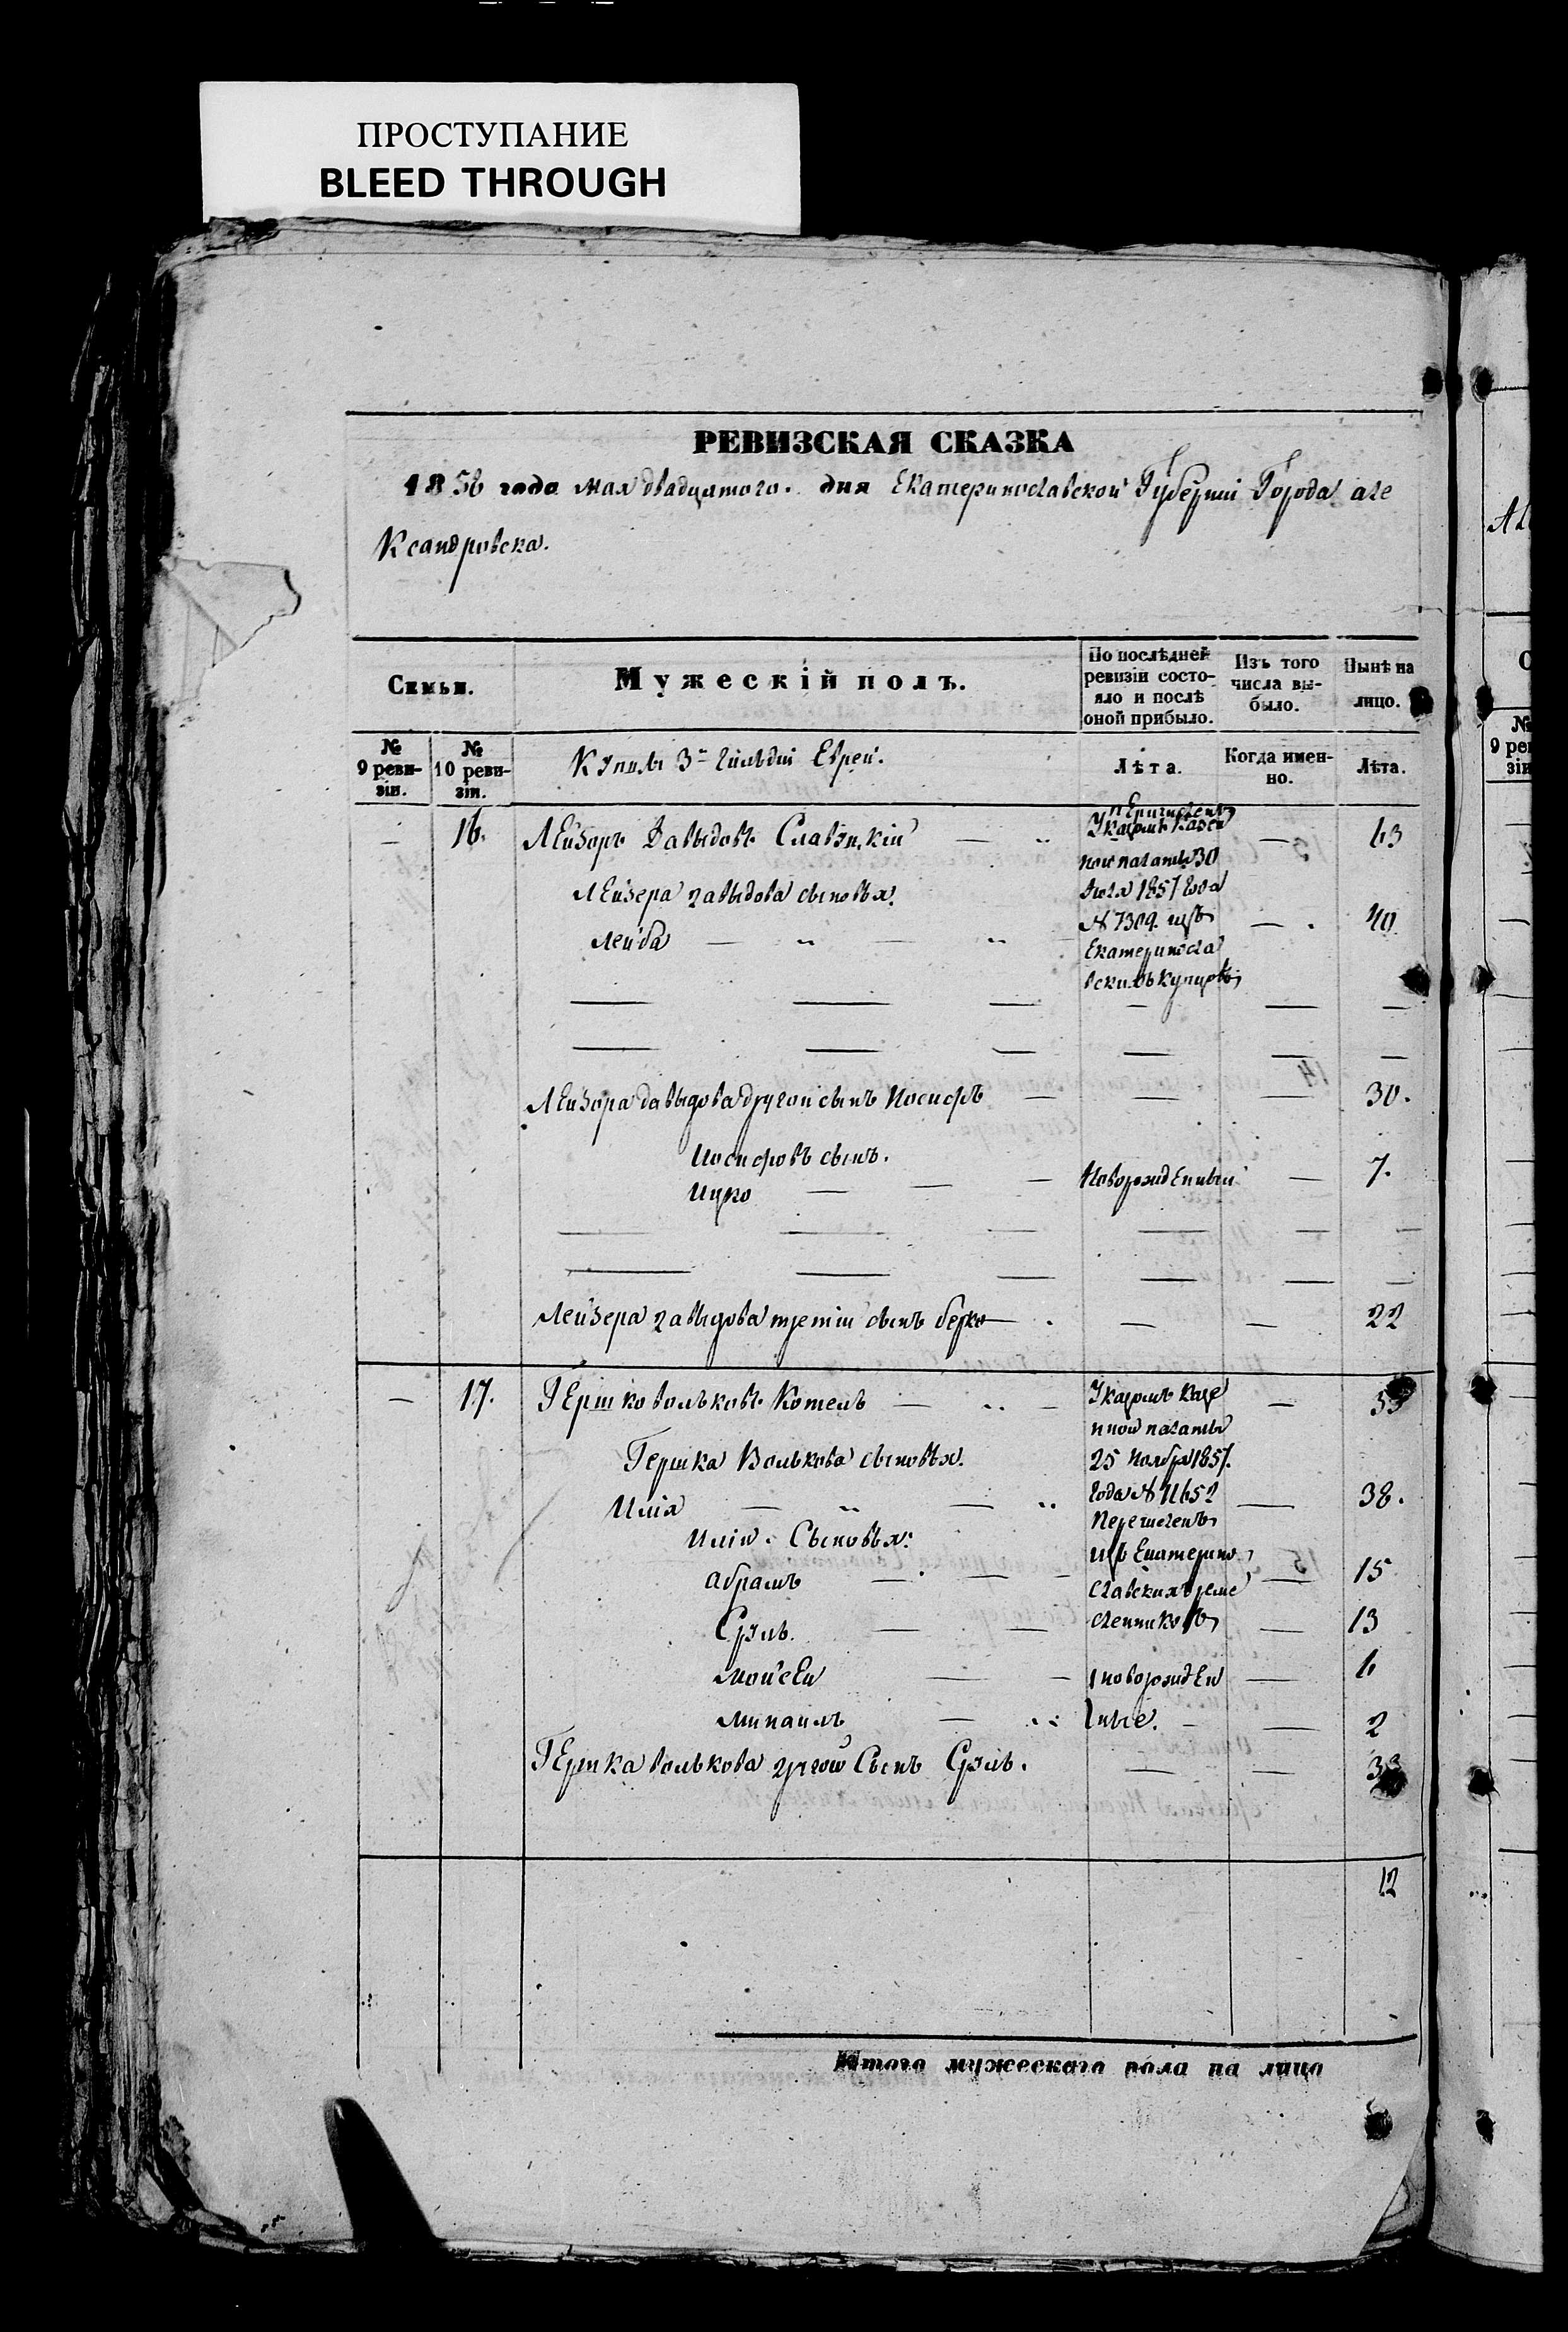 ПРОСТУПАНИЕ
BLEED THROUGH
РЕВИЗСКАЯ СКАЗКА
1858 года мая двадцатого. дня Екатеринославской Губерніи Города але
ксандровска.
Семьи.
Мужескій полъ.
По послѣдней ревизіи состояло и послѣ оной прибыло.
Изъ того числа выбыло.
Нынѣ на лицо.
№ 9 ревизіи.
№ 10 ревизіи.
Купцы 3й гильдіи Евреи.
Лѣта.
Когда именно.
Лѣта.
— 16. Лейзоръ Давыдовъ Славуцкій — — 63
Перечислен
Указомъ Казен
ной палаты 30
Июля 1857 года
№ 7309. изъ
Екатериносла
вскихъ купцовъ
Лейзера давыдова сыновья:
Лейба — — — 40
Лейзора давыдова другой сынъ Иосифъ — — — 30.
Иосифовъ сынъ.
Ицко — — — Новорожденный — 7.
Лейзера давыдова третій сынъ берко — — — 22
— 17. Гершко вольковъ Котель — —
Указомъ казе
нной палаты
25 Ноября 1857.
года № 11652
Перечислен
изъ Екатерино
славскихъ реме
сленниковъ
Гершка Волькова сыновья.
Илія — — — 38.
Иліи Сыновья:
абрамъ — — — 15
Сруль. — — — 13
мойсей — — новорожден — 6
михаилъ — ные. — — 2
Гершка волькова другой Сынъ Сруль. — — 33
12
Итого мужескаго пола на лицо